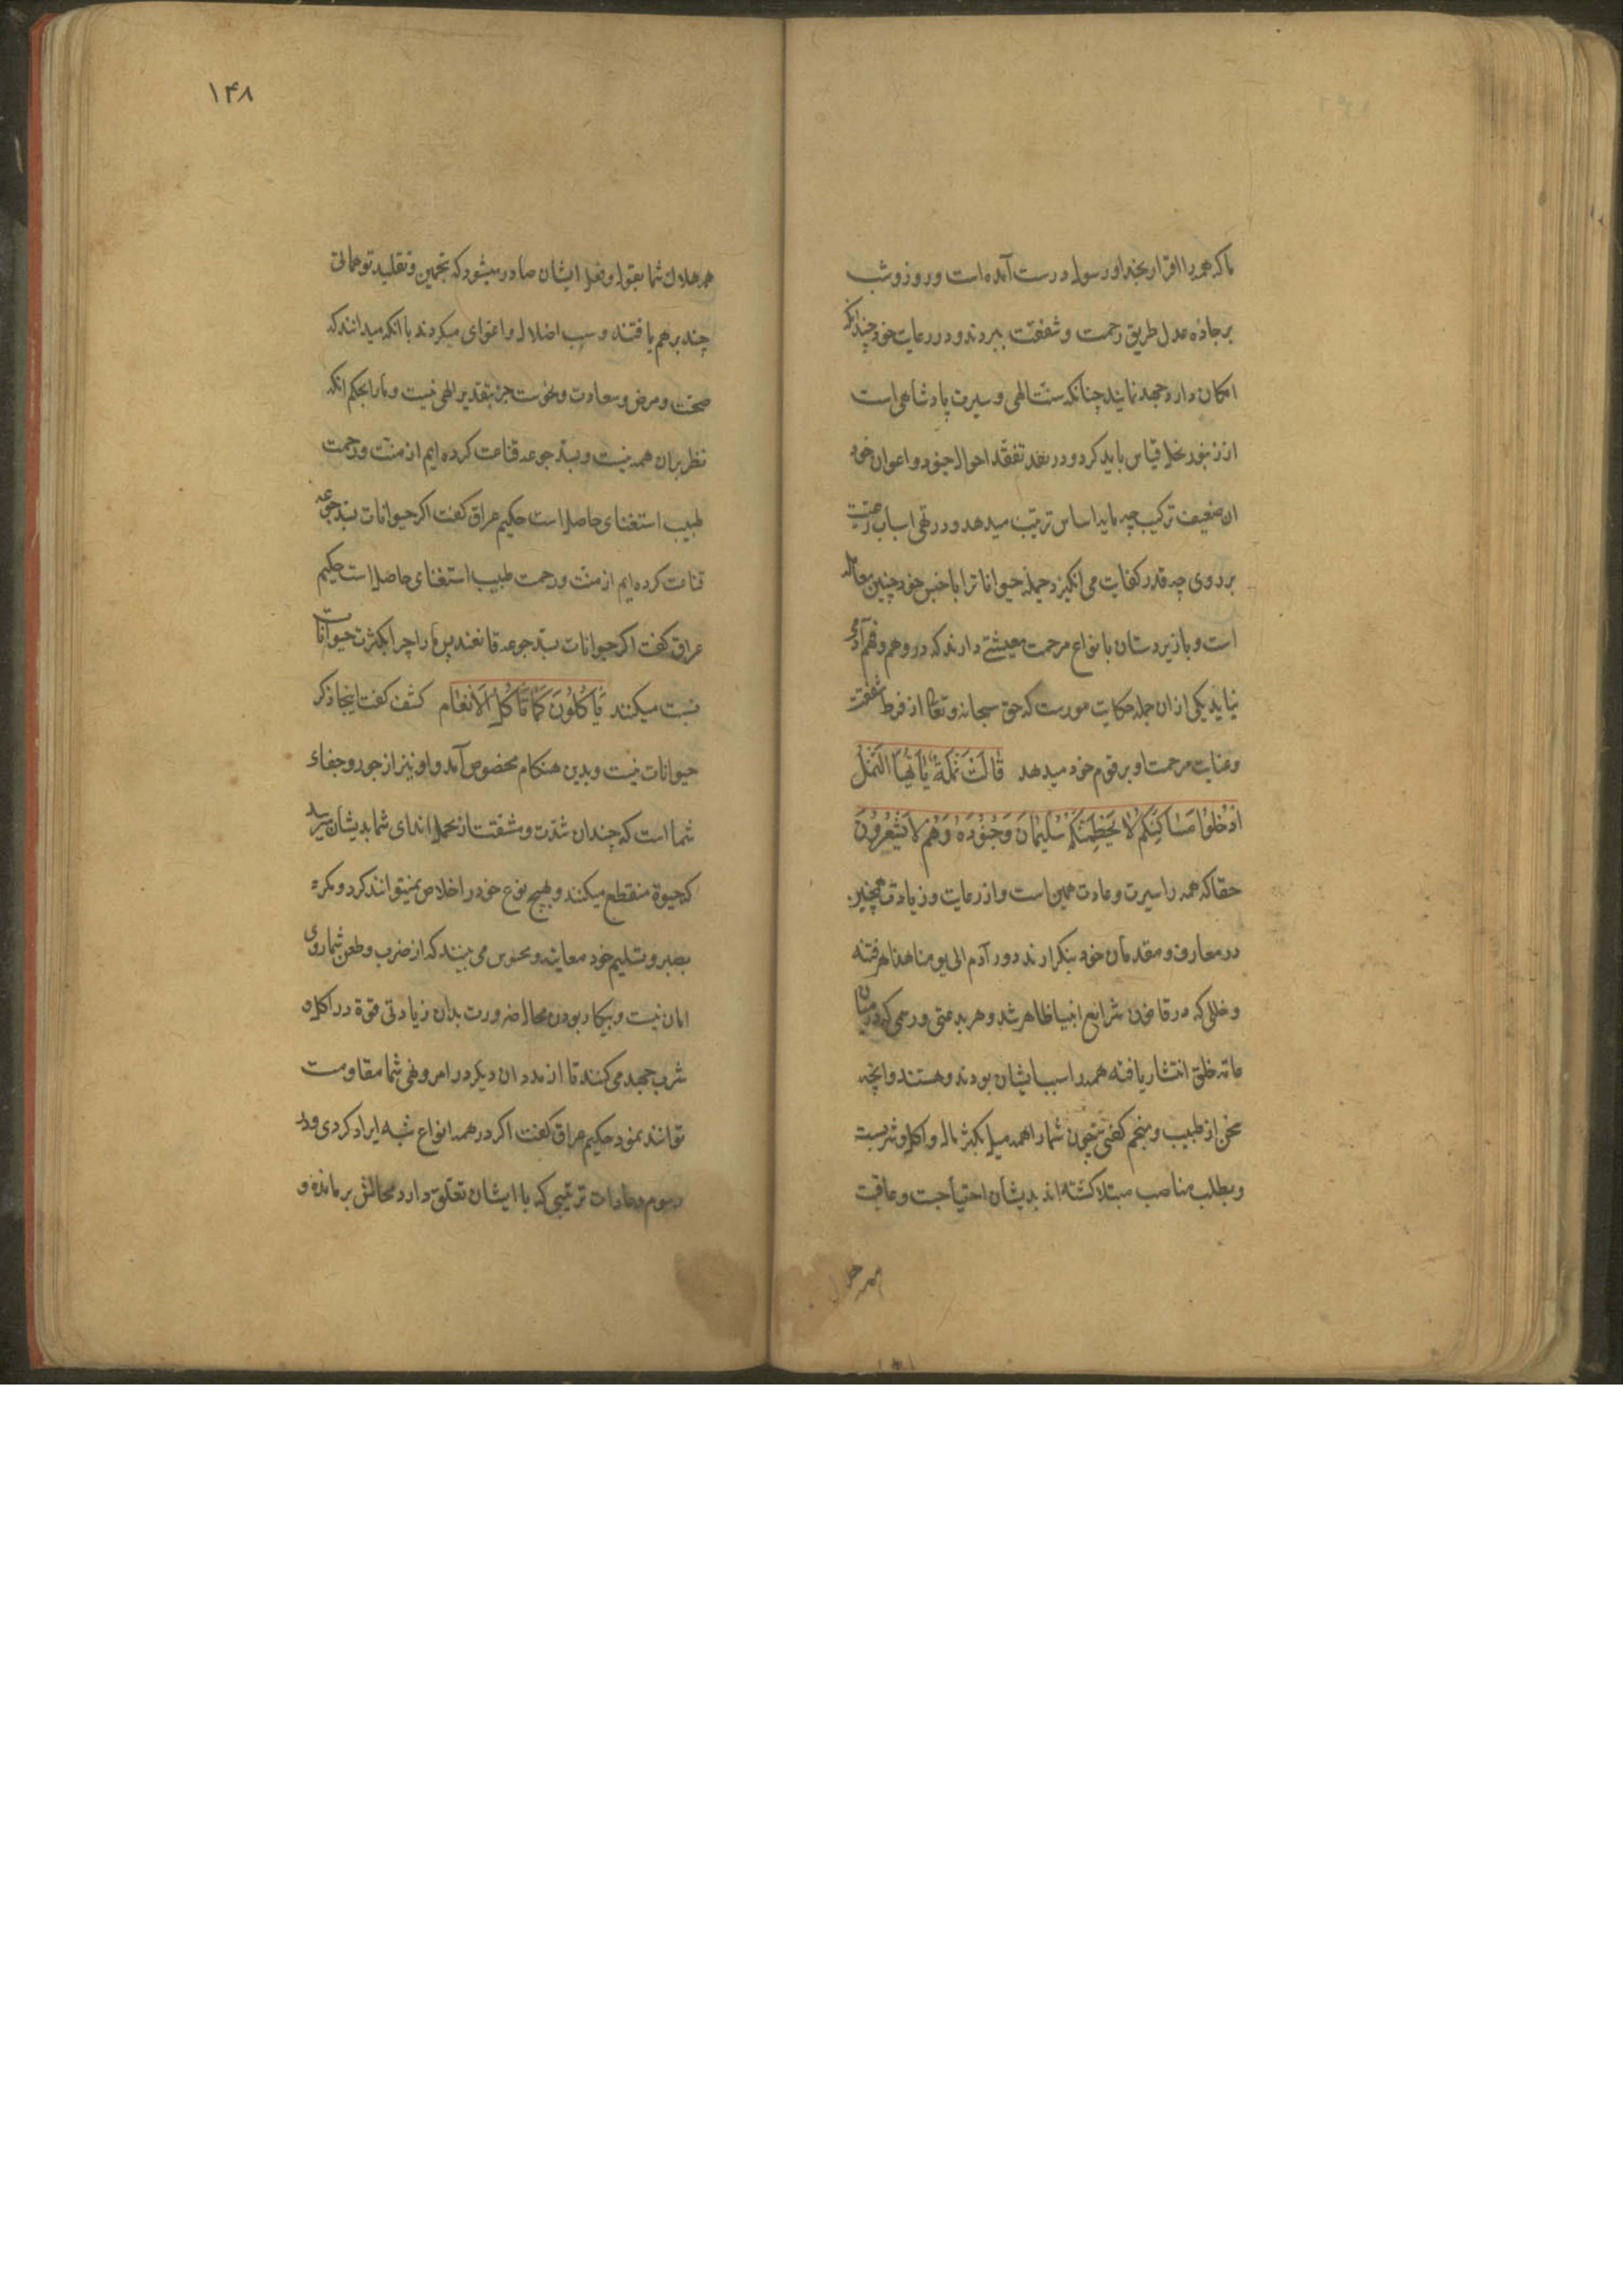 ما که همه را اقرار بخدا و رسول درست آمده است و روز و شب
بر جاده عدل طریق رحمت و شفقت ببردند و در رعایت خود چندانکه
امکان دارد جهد نمایند چنانکه سنت الهی و سیرت پادشاهی است
از زنبور نحل قیاس باید کرد و در نقد تفقد احوال جنود و اعوان خود
ان ضعیف ترکیب چه ماید اساس ترتیب میدهد و در نهی اسباب رعیت
بر روی چه قدر کفایت می انکیزد جمله حیوانات را با جنس خود چنین معامله
است و با زیردستان بانواع مرحمت معیشتی دارند که در وهم و فهم آدمی
نیاید یکی از ان جمله حکایت مورست که حق سبحانه و تعالی از فرط شفقت
و غایت مرحمت او بر قوم خود میدهد قَالَتْ نَمْلَةٌ یَا أَیُّهَا النَّمْلُ
ادْخُلُوا مَسَاکِنَکُمْ لَا یَحْطِمَنَّکُمْ سُلَیْمَانُ وَجُنُودُهُ وَهُمْ لَا یَشْعُرُونَ
حقا که همه را سیرت و عادت همین است و از رعایت و زیادت همچنین
در معارف و مقدمان خود بنکرارند دور آدم الی یومنا هذا هر فتنه
و خللی که در قانون شرایع انبیا ظاهر شد و هر بدعتی و رسمی که در میان
عامه خلق انتشار یافته همه را سبب ایشان بودند و هستند و انچه
سخن از طبیب و منجم کفتی چون شما را همه میل بکثر مال و اکل و شربست
و بطلب مناصب مبتلا کشته اند بدیشان احتیاجت و عاقبت
همه هلاک شما بقول و فعل ایشان صادر میشود که بتخمین و تقلید توهماتی
چند بر هم یافتند و سبب اضلال و اغوای میکردند با انکه میدانند که
صحت و مرض و سعادت و نحوست جز بتقدیر الهی نیست و ما را بحکم انکه
نظر بران همه نیست و بسد جوعه قناعت کرده ایم از منت و رحمت
طبیب استغنای حاصل است حکیم عراق کفت اکر حیوانات بسد جوعه
قناعت کرده ایم از منت و رحمت طبیب استغنای حاصل است حکیم
عراق کفت اکر حیوانات بسد جوعه قانعند پس ما را چرا بکثرت حیوانات
نسبت میکنند یَأْکُلُونَ کَمَا تَأْکُلُ الْأَنْعَام کشف کفت اینجا ذکر
حیوانات نیست و بدین هنکام مخصوص آمد و او نیز از جور و جفاء
شما است که چندان شدت و مشقت از تحمل اندای شما بدیشان میرسد
که حیوة منقطع میکنند و بهیچ نوع خود را خلاص نمیتوانند کرد و مکرء
بصبر و تسلیم خود معاینه و محسوس می بینند که از ضرب و طعن شما روی
امان نیست و بیکار بودن محال ضرورت بدان زیادتی قوة در اکل و
شرب جهد می کنند تا از مدد ان دیکر در امر و نهی شما مقاومت
توانند نمود حکیم عراق کفت اکر در همه انواع شبه ایراد کردی و در
رسوم و عادات ترتیبی که با ایشان تعلق دارد مجالش بر مانده و
همه هلاک
۱۴۸